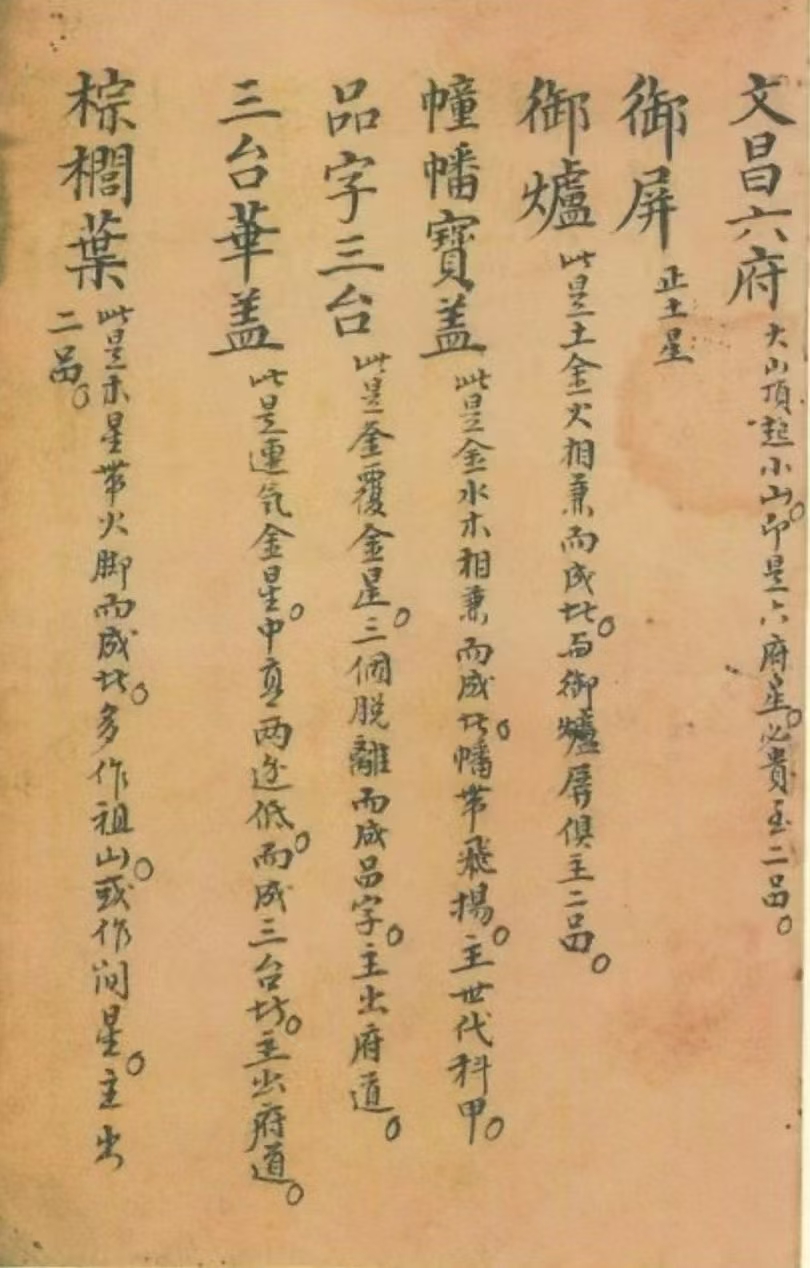 文昌六府 大山頂起小山。即是六府星。必貴至二品。
御屏 正土星
御爐 此是土金火相兼而成址。而御爐屏俱主二品。
幢幡寶盖 此是金水木相兼而成址。幡带飛揚。主世代科甲。
品字三台 此是釜覆金星。三個脱離而成品字。主出府道。
三台華盖 此是連気金星。中高两边低。而成三台坊。主出府道。
棕櫚葉 此是木星带火脚而成址。多作祖山。或作间星。主出
二品。